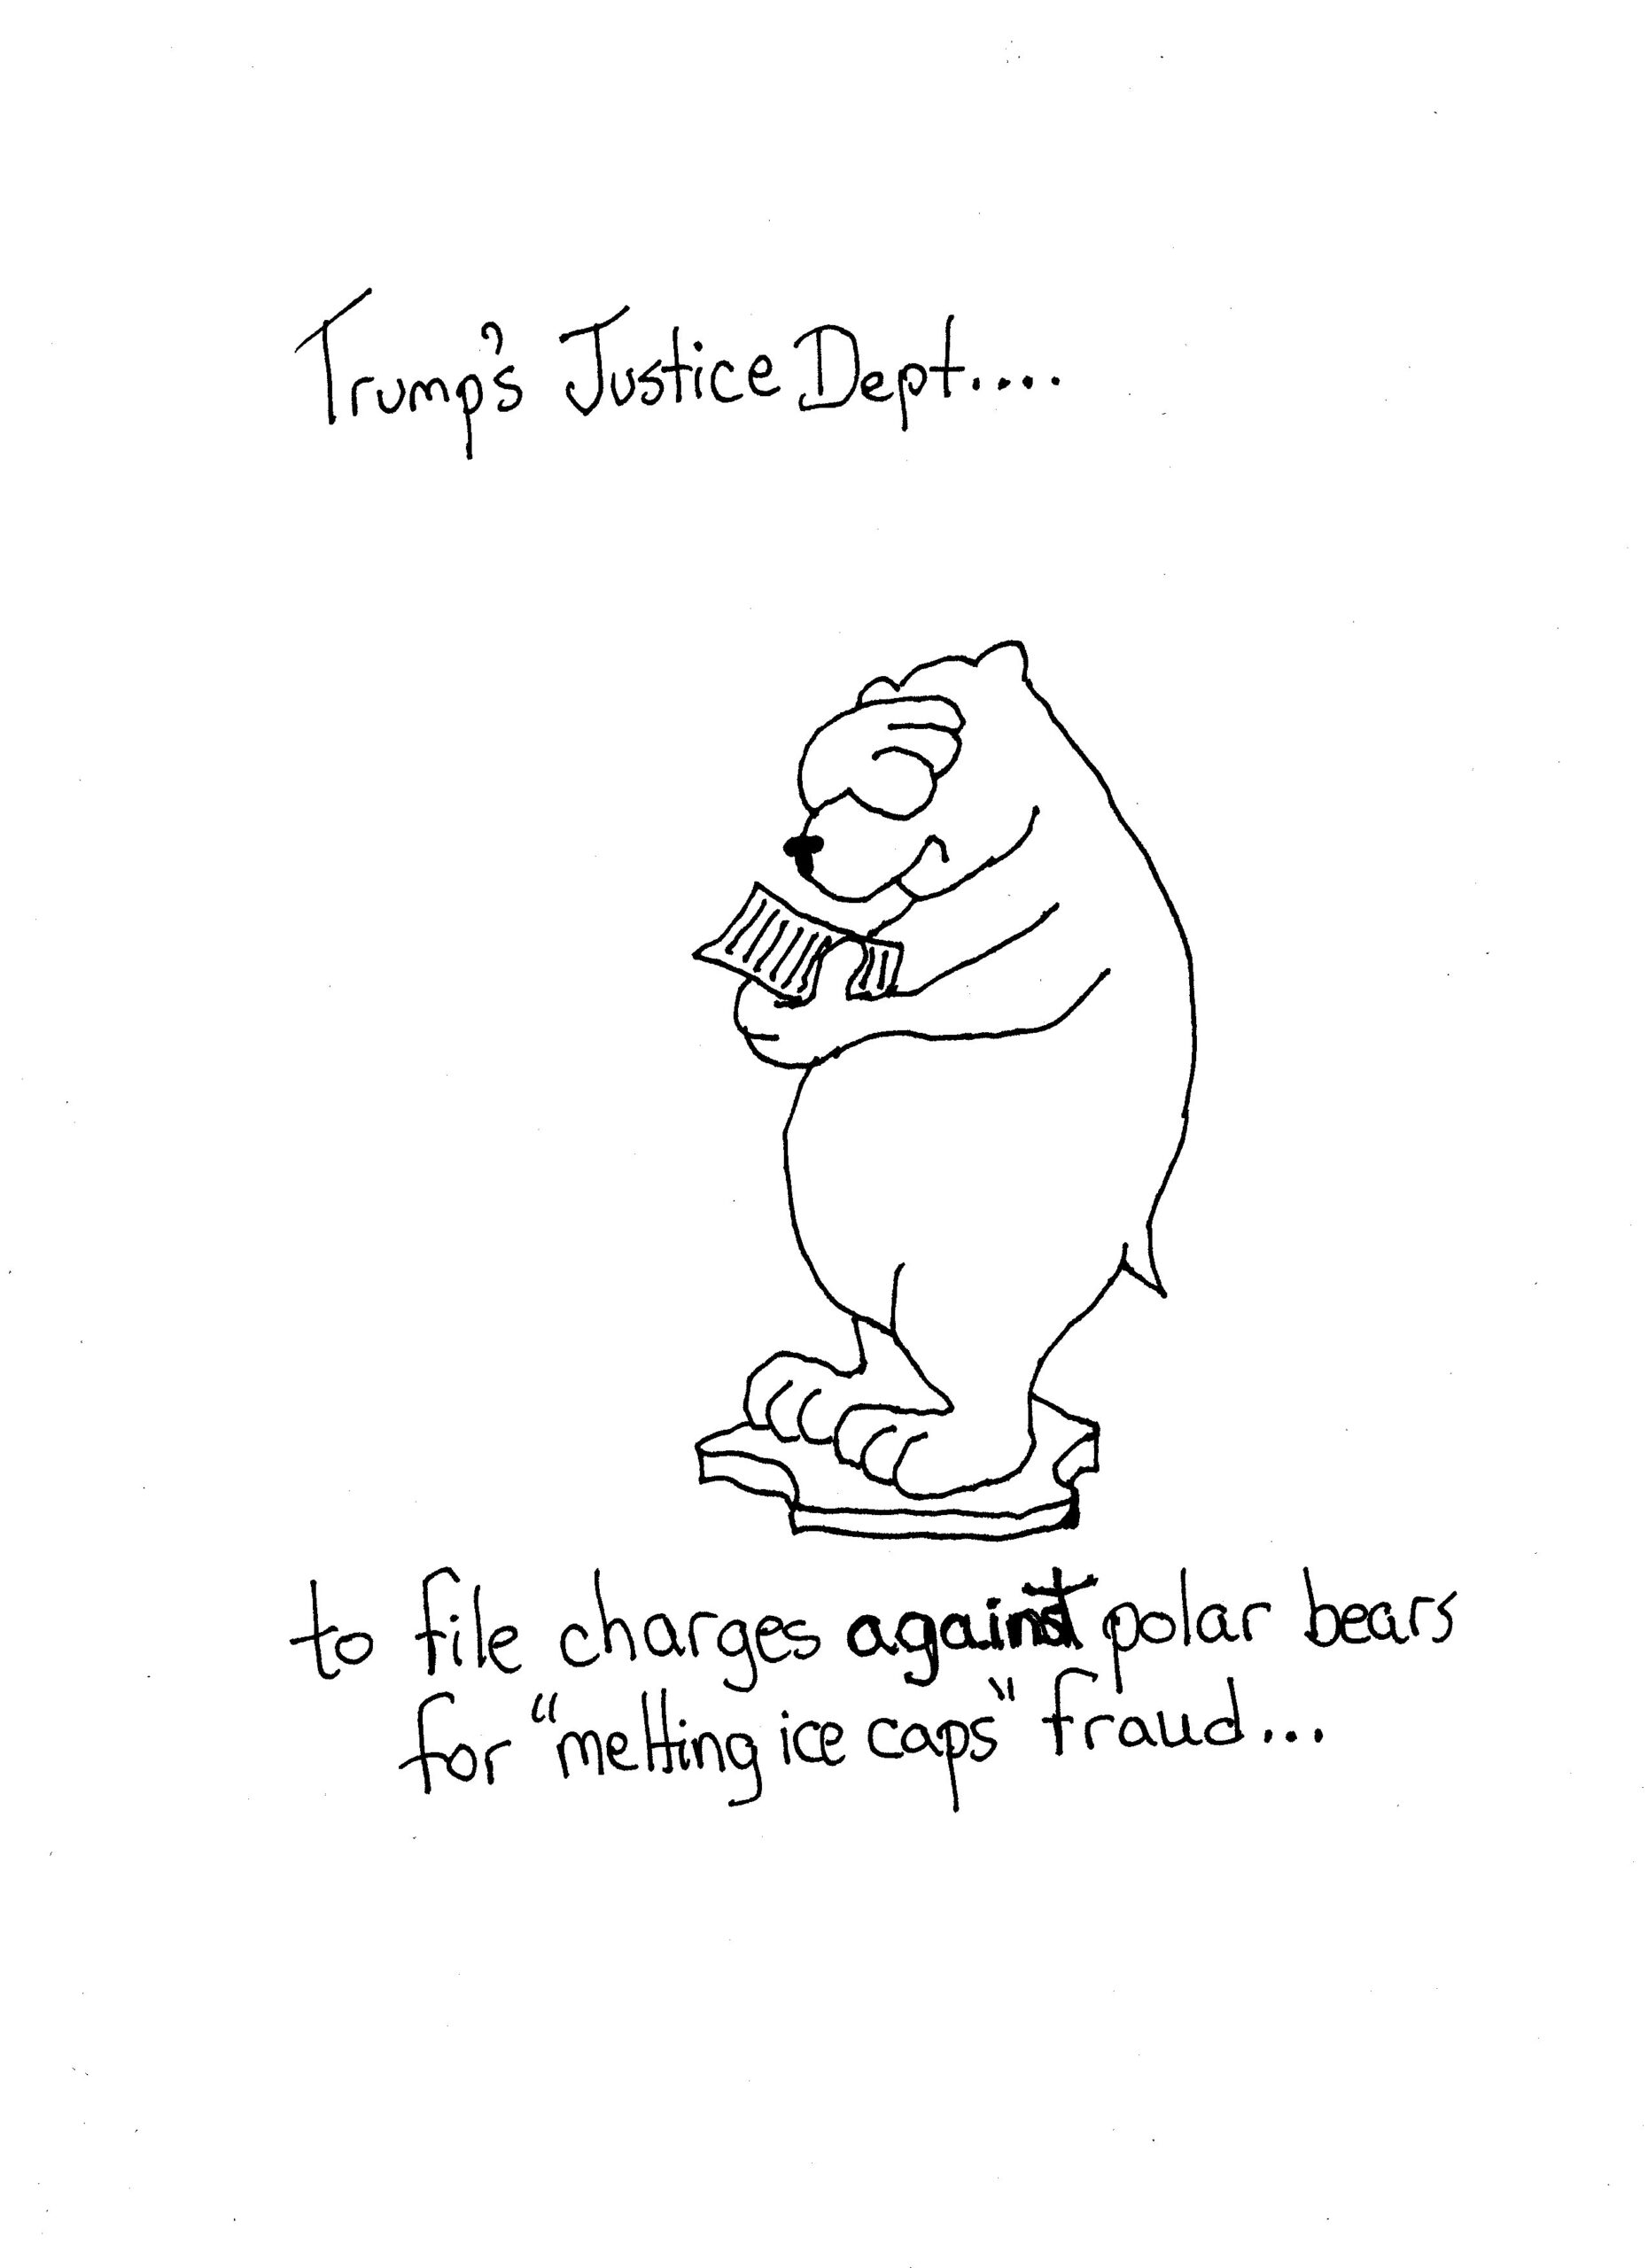 Trump's Justice Dept....
to file charges against polar bears
for "melting ice caps" fraud...